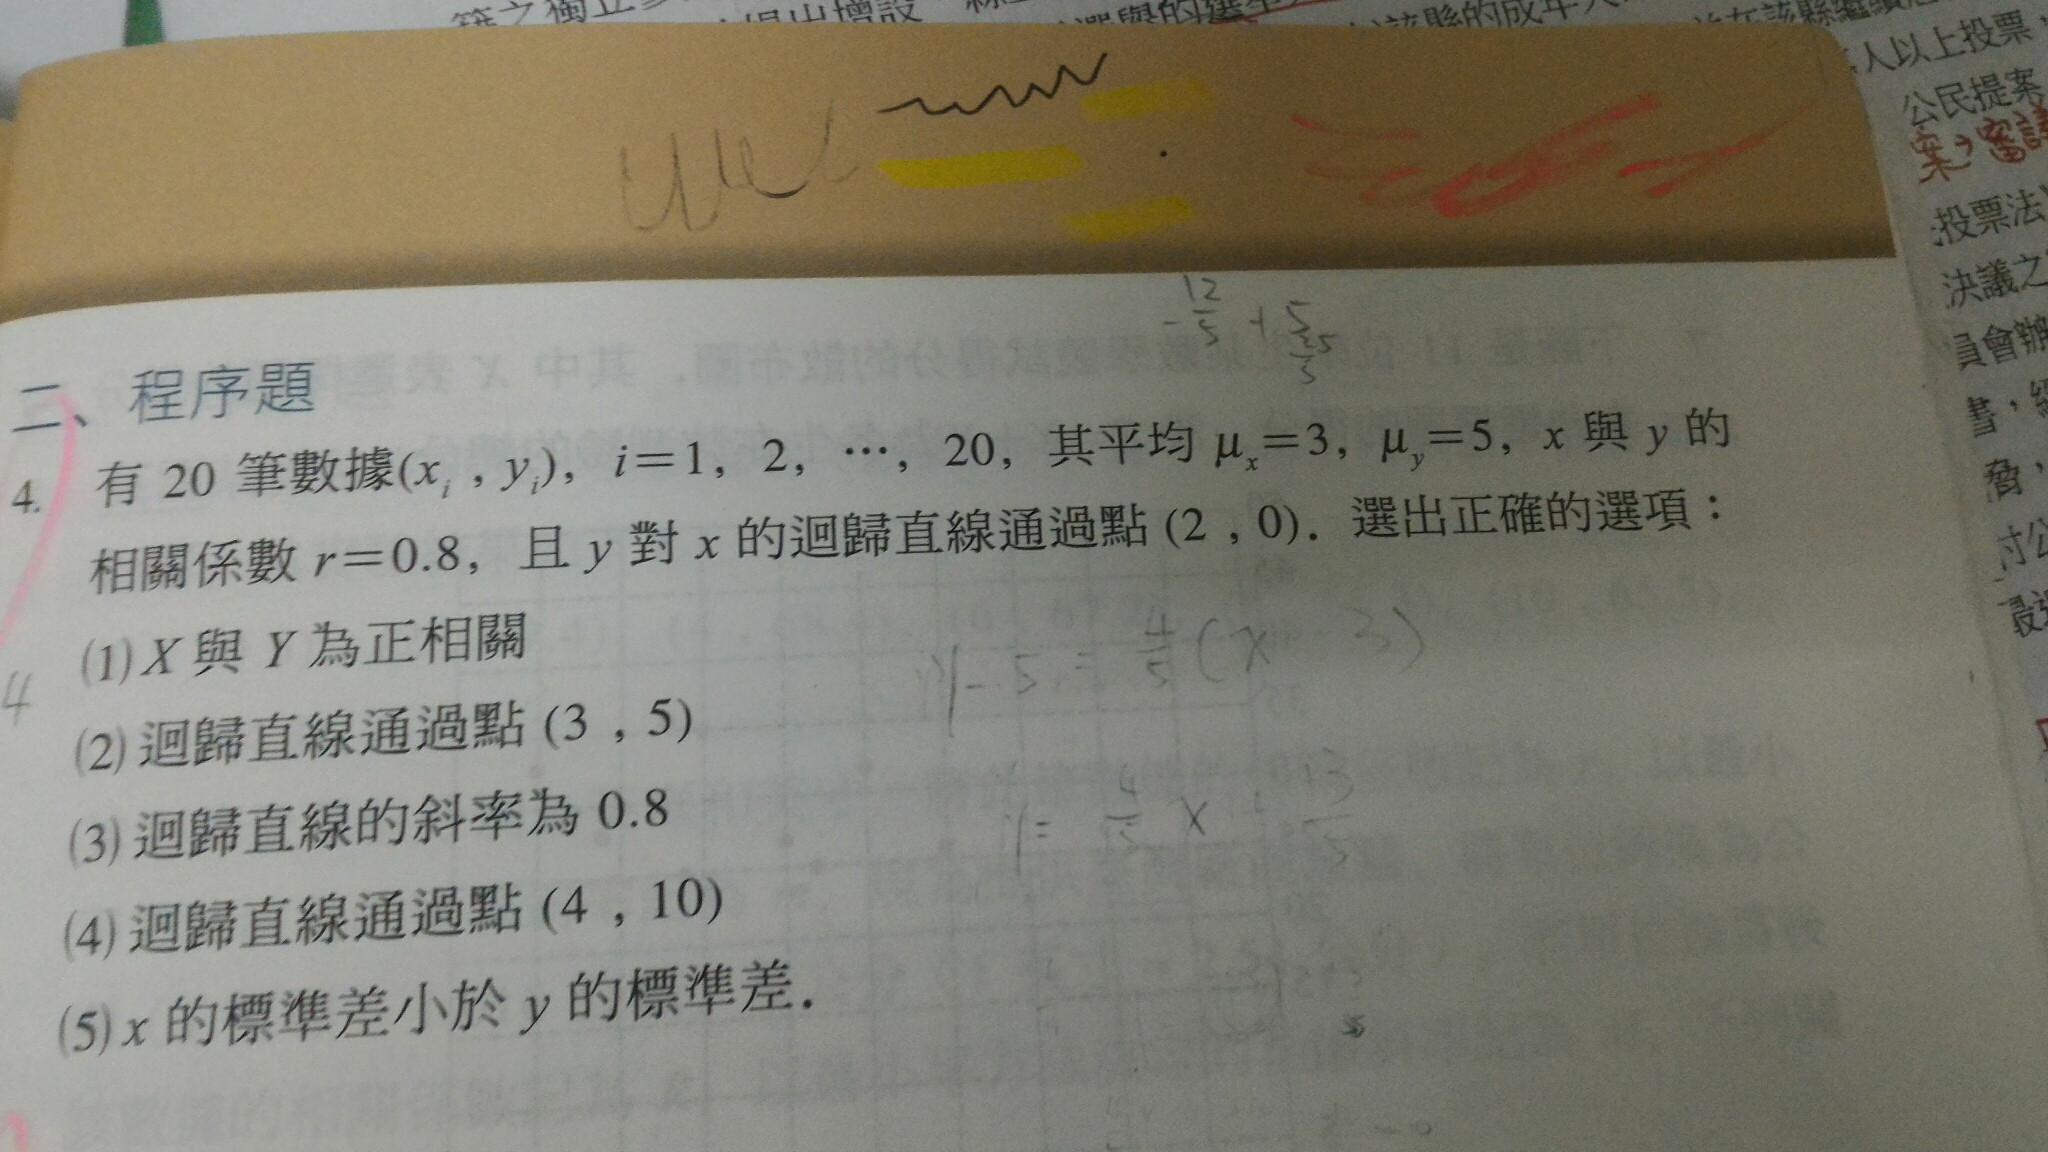 人以上投票,
公民提案
案,審議
投票法
決議之
員會辦
12
- 5 + 5
二、程序題
4. 有 20 筆數據(xᵢ , yᵢ), i=1, 2, …, 20, 其平均 μₓ=3, μᵧ=5, x 與 y 的
相關係數 r=0.8, 且 y 對 x 的迴歸直線通過點 (2 , 0). 選出正確的選項：
(1) X 與 Y 為正相關
y-5 = 4/5 (x 3)
4
(2) 迴歸直線通過點 (3 , 5)
(3) 迴歸直線的斜率為 0.8
y= 4/5 x 13/5
(4) 迴歸直線通過點 (4 , 10)
(5) x 的標準差小於 y 的標準差.